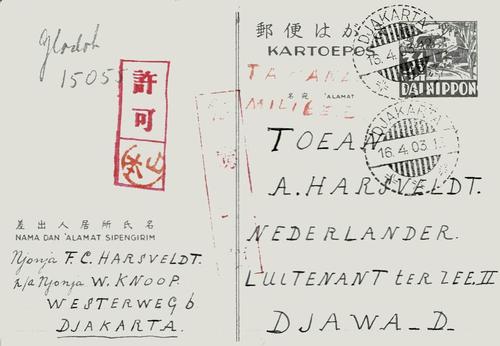 Glodok
15055
許可
差出人居所氏名
NAMA DAN ALAMAT SIPENGIRIM
Njonja F.C. HARSVELDT.
p/a Njonja W. KNOOP.
WESTERWEG 6
DJAKARTA.
郵便はが
KARTOEPOS
DAI NIPPON
DJAKARTA
16.4.03
DJAKARTA
16.4.03
名宛 ALAMAT
TOEAN
A. HARSVELDT.
NEDERLANDER.
LUITENANT ter ZEE III
DJAWA_D_